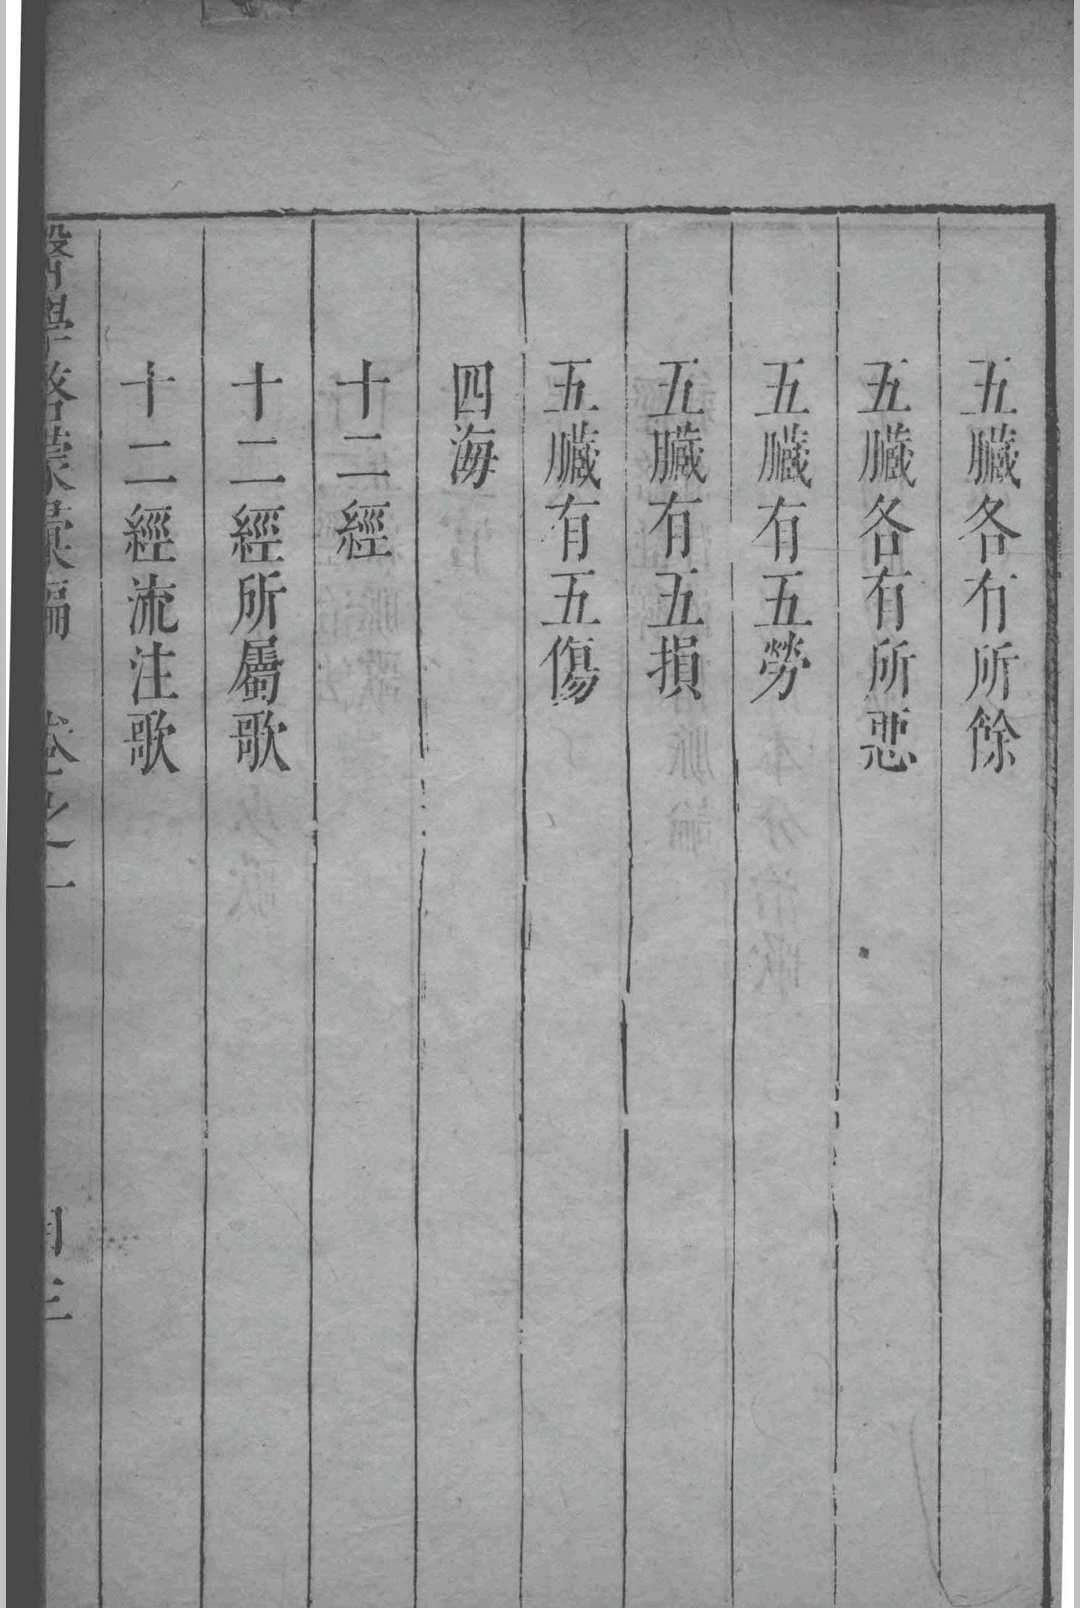 五臟各有所餘
五臟各有所惡
五臟有五勞
五臟有五損
五臟有五傷
四海
十二經
十二經所屬歌
十二經流注歌
醫學啓蒙彙編 卷之一 目三